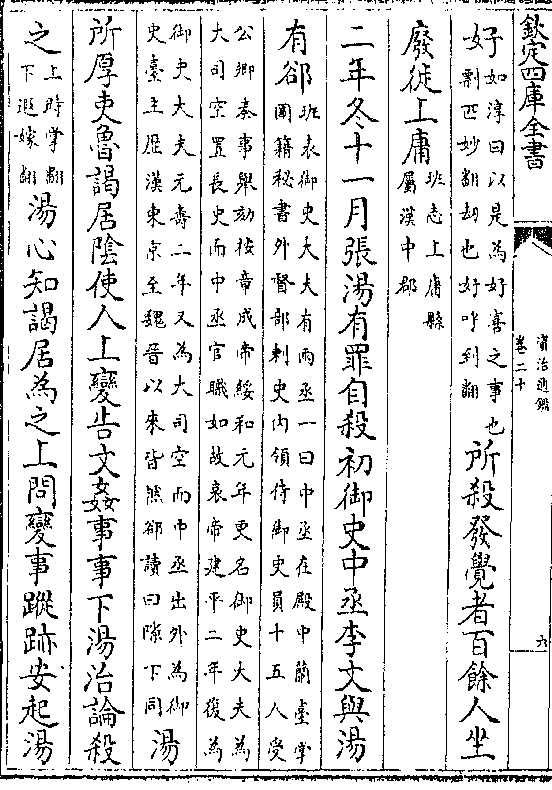 欽定四庫全書
資治通鑑
卷二十
六
好
如淳曰以是為好喜之事也
剽匹妙翻劫也好呼到翻
所殺發覺者百餘人坐
廢徙上庸
班志上庸縣
屬漢中郡
二年冬十一月張湯有罪自殺初御史中丞李文與湯
有郤
班表御史大夫有兩丞一曰中丞在殿中蘭臺掌
圖籍秘書外督部刺史内領侍御史員十五人受
公卿奏事舉劾按章成帝綏和元年更名御史大夫為
大司空置長史而中丞官職如故哀帝建平二年復為
御史大夫元壽二年又為大司空而中丞出外為御
史臺主歷漢東京至魏晉以來皆然郤讀曰隙下同
湯
所厚吏魯謁居陰使人上變告文姦事事下湯治論殺
之
上時掌翻
下遐嫁翻
湯心知謁居為之上問變事蹤跡安起湯